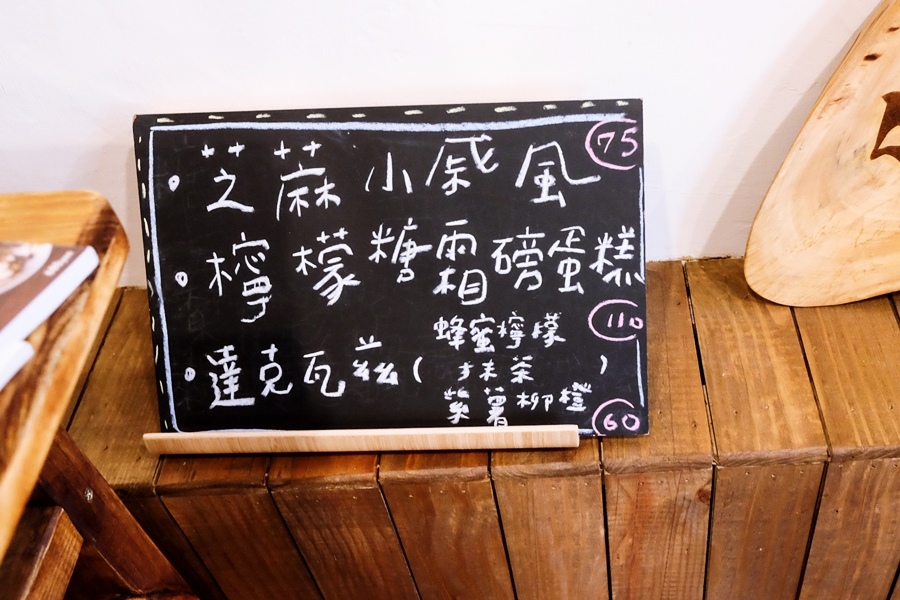 芝蔴小戚風 75
檸檬糖霜磅蛋糕 110
達克瓦茲(蜂蜜檸檬
抹茶
紫薯柳橙) 60